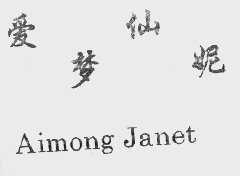 爱梦仙妮
Aimong Janet